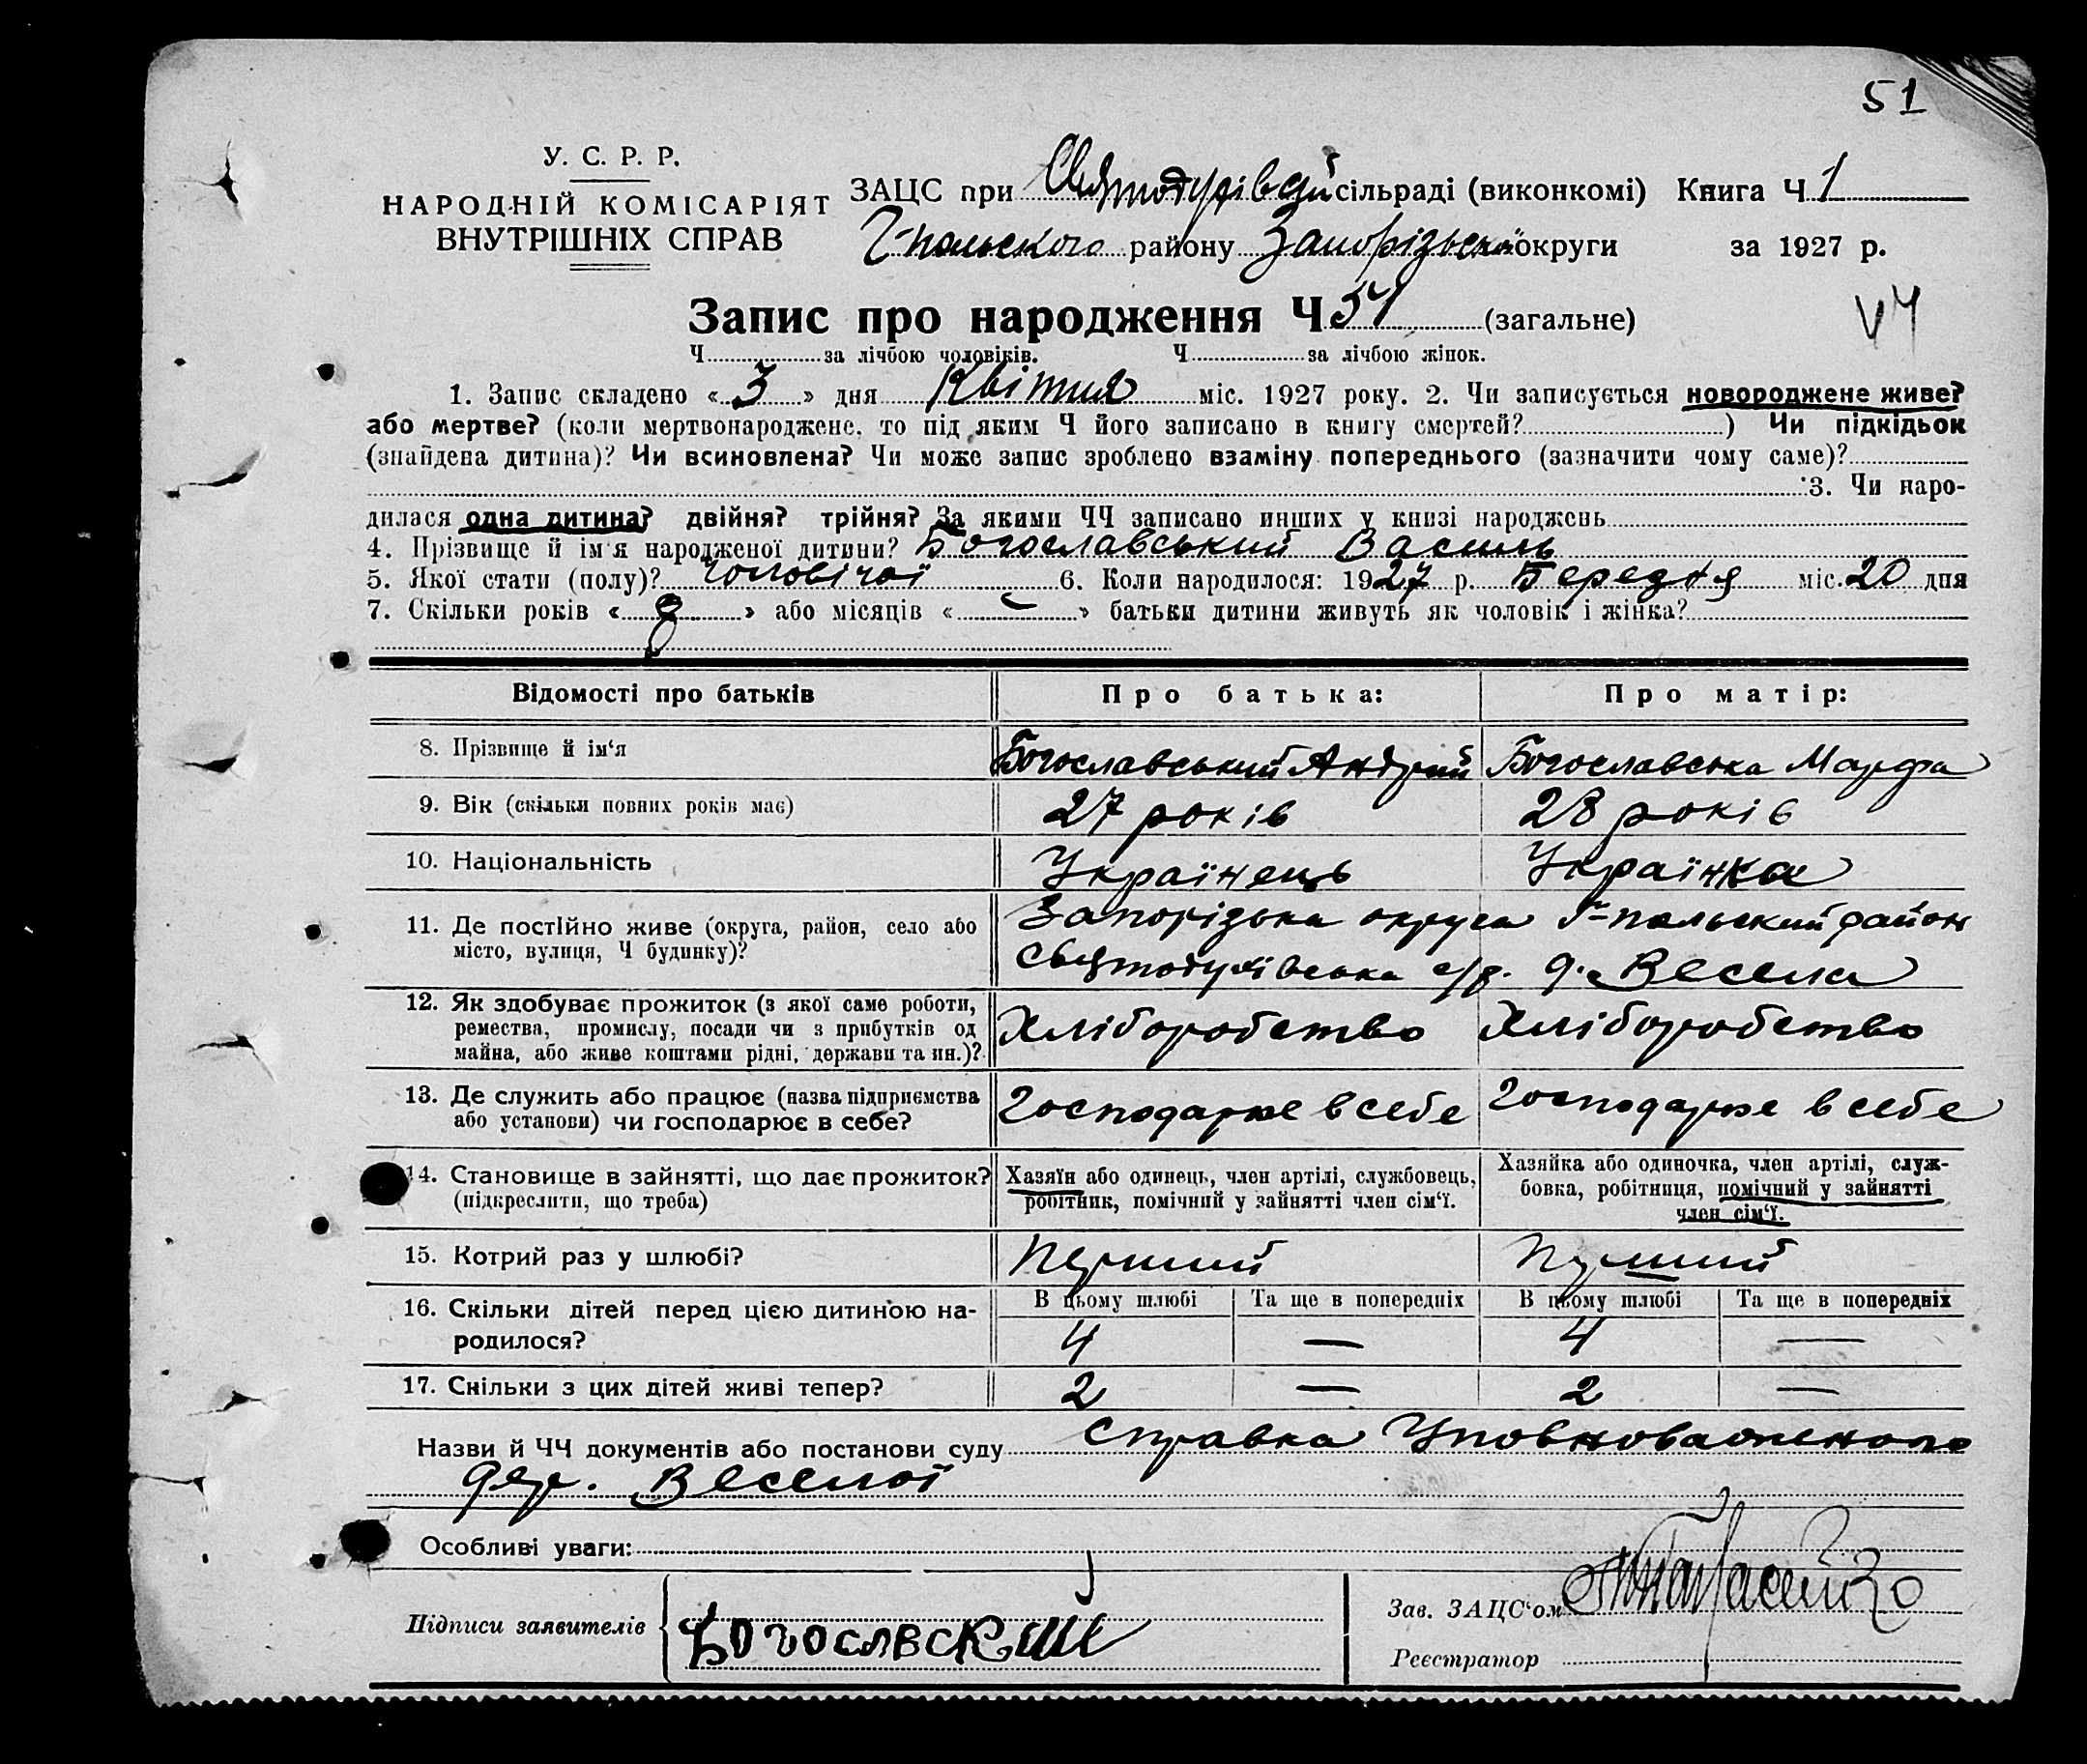 51
У. С. Р. Р.
НАРОДНІЙ КОМІСАРІЯТ
ВНУТРІШНІХ СПРАВ
ЗАЦС при сільраді (виконкомі) Книга Ч 1
Г-польского району Запорізької округи за 1927 р.
Запис про народження Ч 51 (загальне)
Ч за лічбою чоловіків. Ч за лічбою жінок.
1. Запис складено « 3 » дня Квітня міс. 1927 року. 2. Чи записується новороджене живе?
або мертве? (коли мертвонароджене, то під яким Ч його записано в книгу смертей? ) Чи підкідьок
(знайдена дитина)? Чи всиновлена? Чи може запис зроблено взаміну попереднього (зазначити чому саме)?
3. Чи наро-
дилася одна дитина? двійня? трійня? За якими ЧЧ записано инших у книзі народжень
4. Прізвище й ім'я народженої дитини? Богославський Василь
5. Якої стати (полу)? чоловічої 6. Коли народилося: 1927 р. Березня міс. 20 дня
7. Скільки років « 8 » або місяців « — » батьки дитини живуть як чоловік і жінка?
Відомості про батьків Про батька: Про матір:
8. Прізвище й ім'я Богославський Андрій Богославська Марфа
9. Вік (скільки повних років має) 27 років 28 років
10. Національність Українець Українка
11. Де постійно живе (округа, район, село або Запорізька округа Г-польский район
місто, вулиця, Ч будинку)? с/р. д. Весела
12. Як здобуває прожиток (з якої саме роботи,
ремества, промислу, посади чи з прибутків од Хліборобство Хліборобство
майна, або живе коштами рідні, держави та ин.)?
13. Де служить або працює (назва підприємства Господарює в себе Господарює в себе
або установи) чи господарює в себе?
14. Становище в зайнятті, що дає прожиток? Хазяїн або одинець, член артілі, службовець, Хазяйка або одиночка, член артілі, служ-
(підкреслити, що треба) робітник, помічний у зайнятті член сім'ї. бовка, робітниця, помічний у зайнятті
член сім'ї.
15. Котрий раз у шлюбі? Перший Перший
16. Скільки дітей перед цією дитиною на- В цьому шлюбі Та ще в попередніх В цьому шлюбі Та ще в попередніх
родилося? 4 — 4 —
17. Скільки з цих дітей живі тепер? 2 — 2 —
Назви й ЧЧ документів або постанови суду справка Уповноваженого
дер. Веселої
Особливі уваги:
Підписи заявителів Богославский Зав. ЗАЦС'ом
Реєстратор